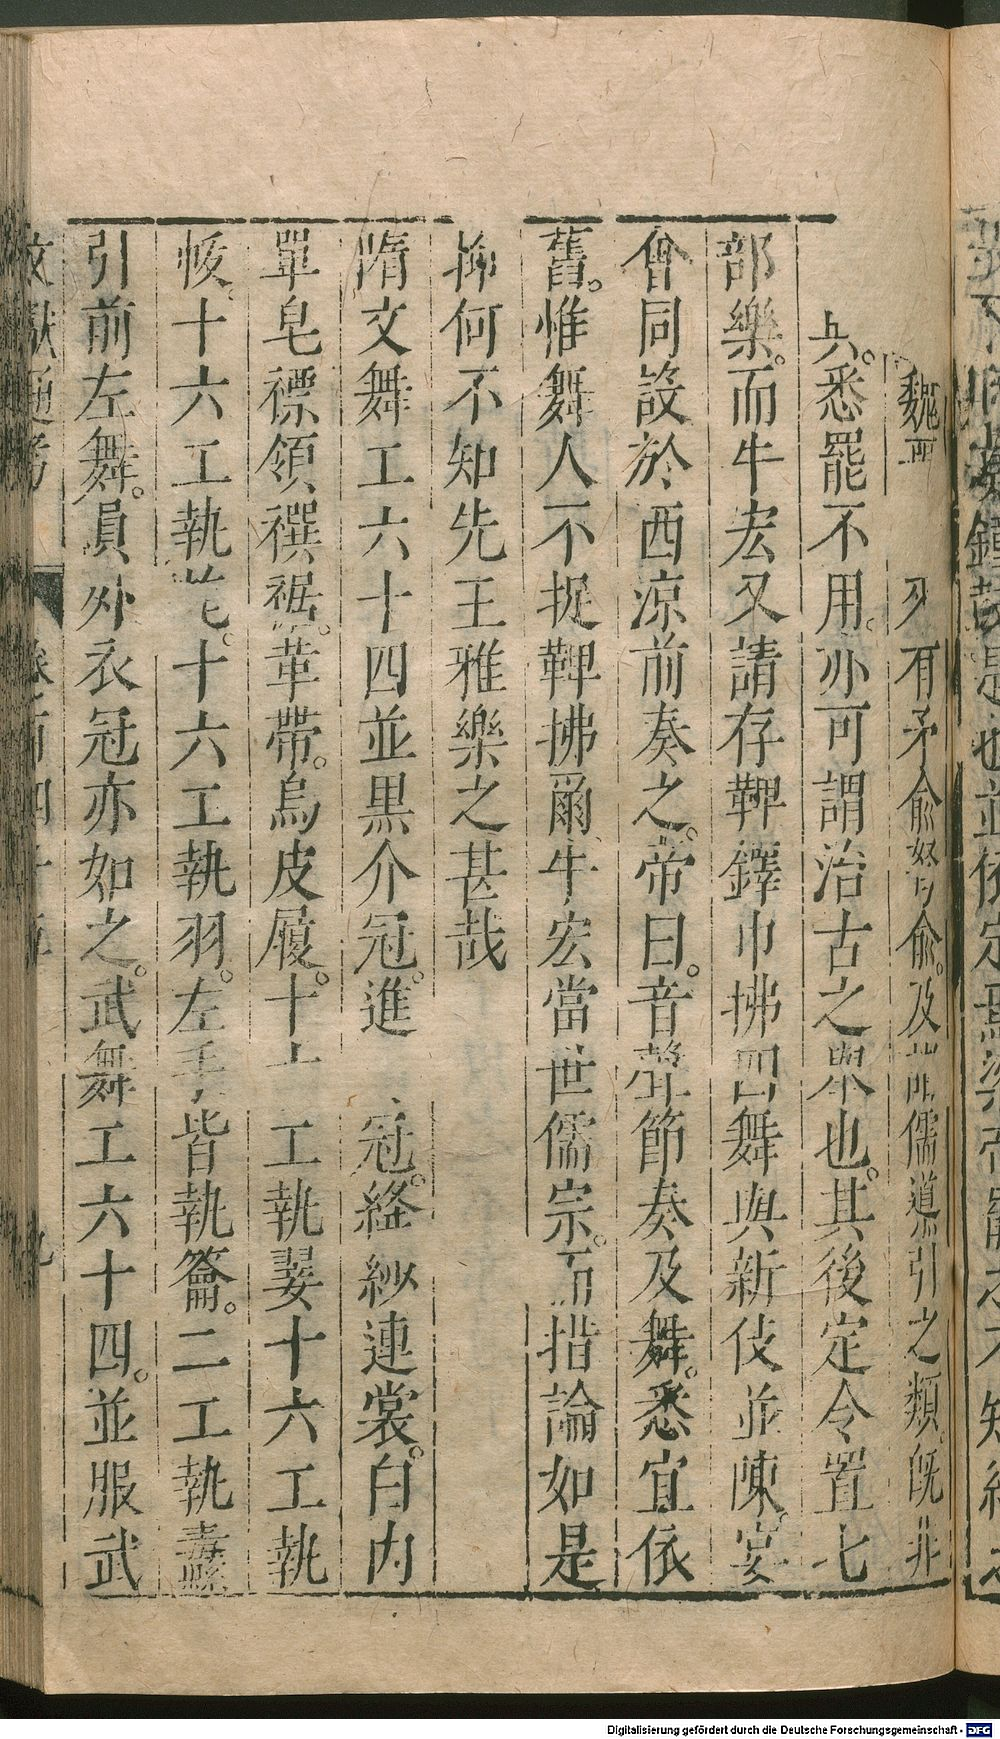 魏 有矛俞弩俞。及 儒導引之類。旣非
兵。悉罷不用。亦可謂治古之舉也。其後定令置七
部樂。而牛宏又請存鞞鐸巾拂四舞與新伎並陳。宴
會同設於西涼前奏之。帝曰。音聲節奏及舞。悉宜依
舊。惟舞人不捉鞞拂爾。牛宏當世儒宗。而措論如是
抑何不知先王雅樂之甚哉
隋文舞工六十四並黒介冠。進 冠。絳紗連裳。白内
單皂褾領襈裾。革帶。烏皮履。十 工執翣十六工執
帗。十六工執 。十六工執羽。左手皆執籥。二工執纛
引前左舞。員外衣冠亦如之。武舞工六十四。並服武
文獻通考 卷百四十五 九
Digitalisierung gefördert durch die Deutsche Forschungsgemeinschaft - DFG